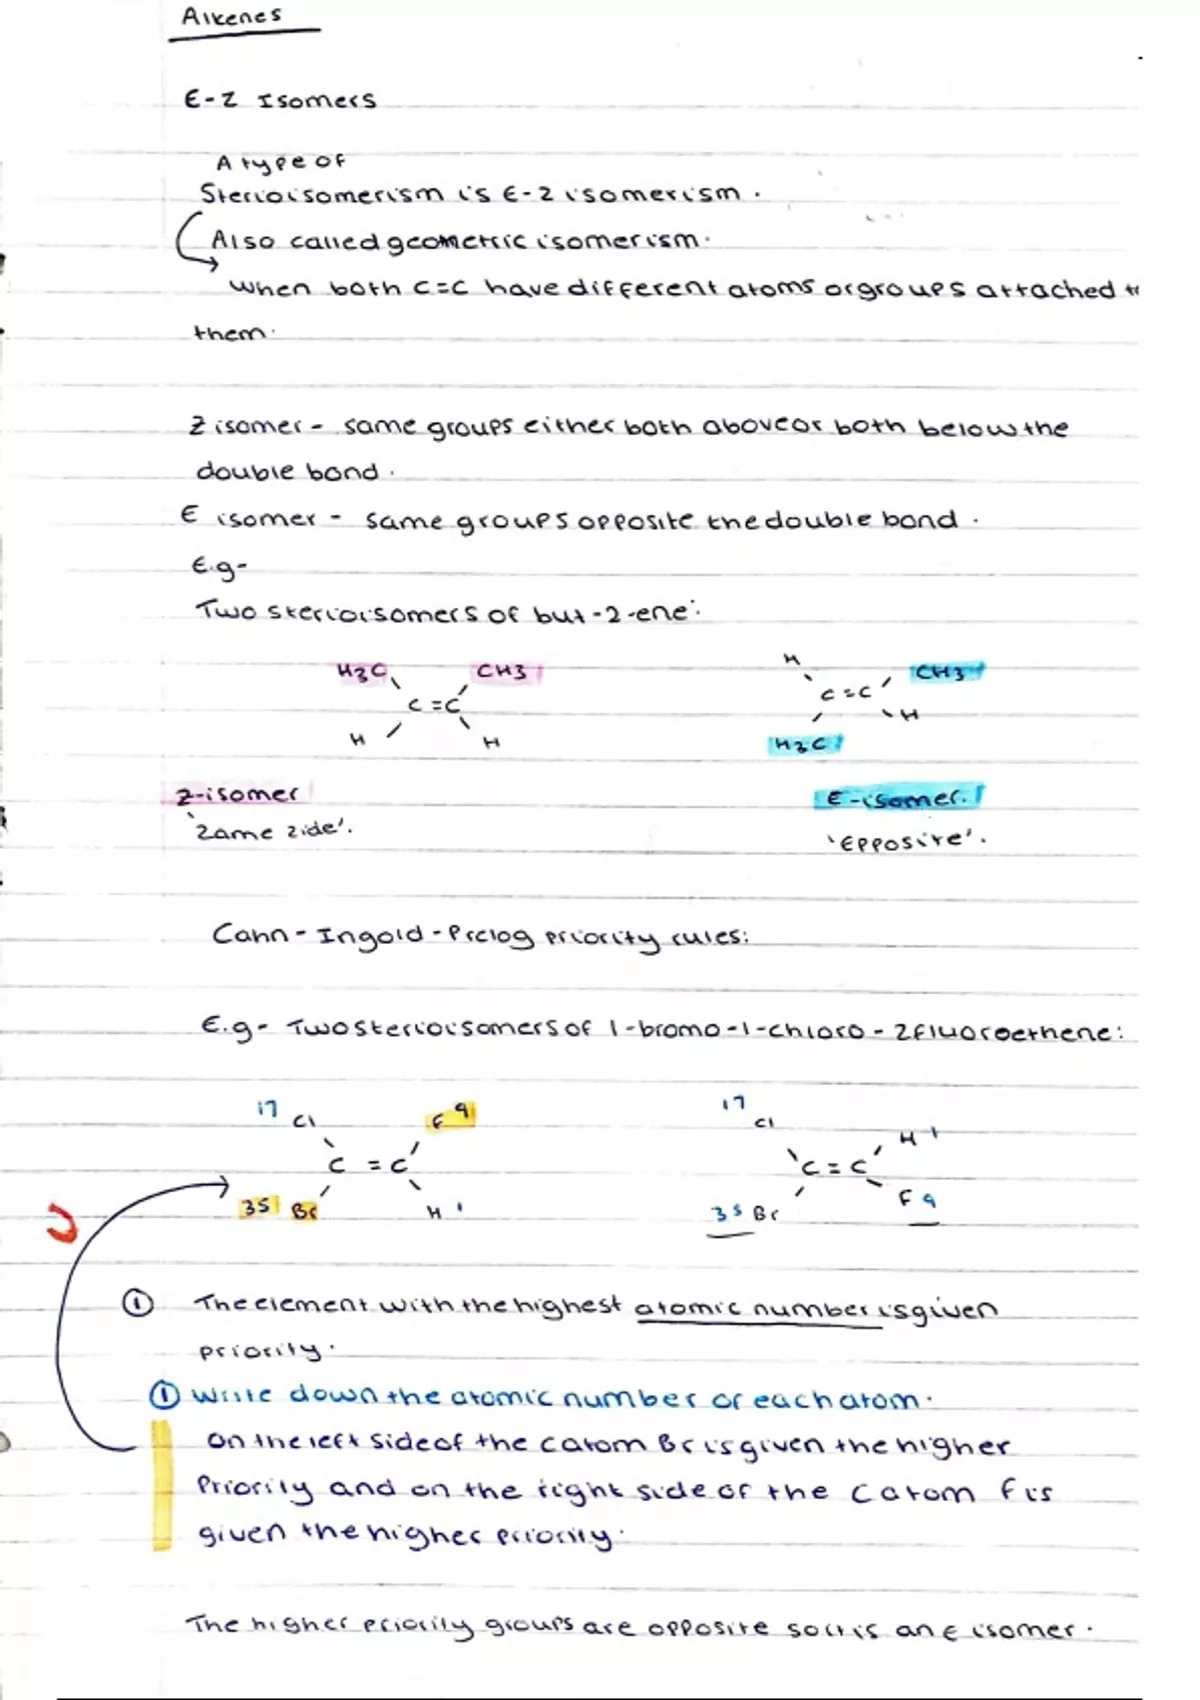 Alkenes
E-Z Isomers
A type of
Sterioisomerism is E-Z isomerism.
Also called geometric isomerism.
When both C=C have different atoms or groups attached to
them.
Z isomer - same groups either both above or both below the
double bond.
E isomer - same groups opposite the double bond.
E.g-
Two sterioisomers of but-2-ene:
H3C CH3 H CH3
C=C C=C
H H H3C H
Z-isomer E-isomer.
'Zame Zide'. 'Epposite'.
Cahn-Ingold-Prelog priority rules:
E.g- Two sterioisomers of 1-bromo-1-chloro-2fluoroethene:
17 Cl F 9 17 Cl H 1
C=C C=C
35 Br H 1 35 Br F 9
① The element with the highest atomic number is given
priority.
① Write down the atomic number of each atom.
On the left side of the C atom Br is given the higher
Priority and on the right side of the C atom F is
given the higher priority.
The higher priority groups are opposite so it is an E isomer.